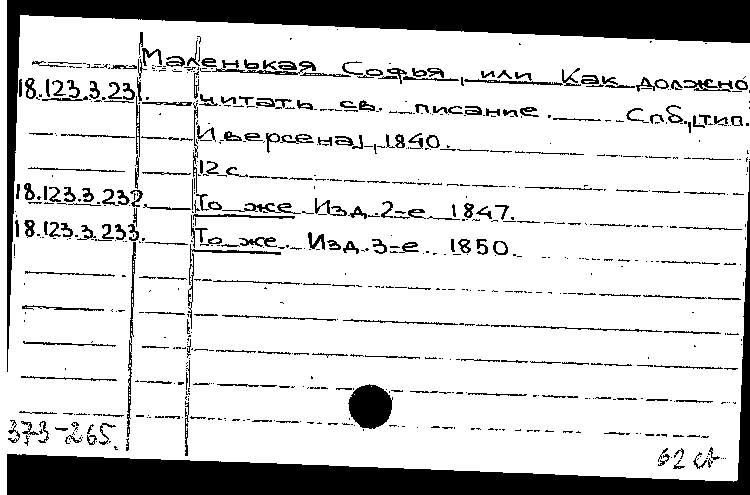 Маленькая Софья, или Как должно
18.123.3.231. читать св. писание. Спб., тип.
Иверсена, 1840.
12 с.
18.123.3.232. То же. Изд. 2-е. 1847.
18.123.3.233. То же. Изд. 3-е. 1850.
373-265.
62